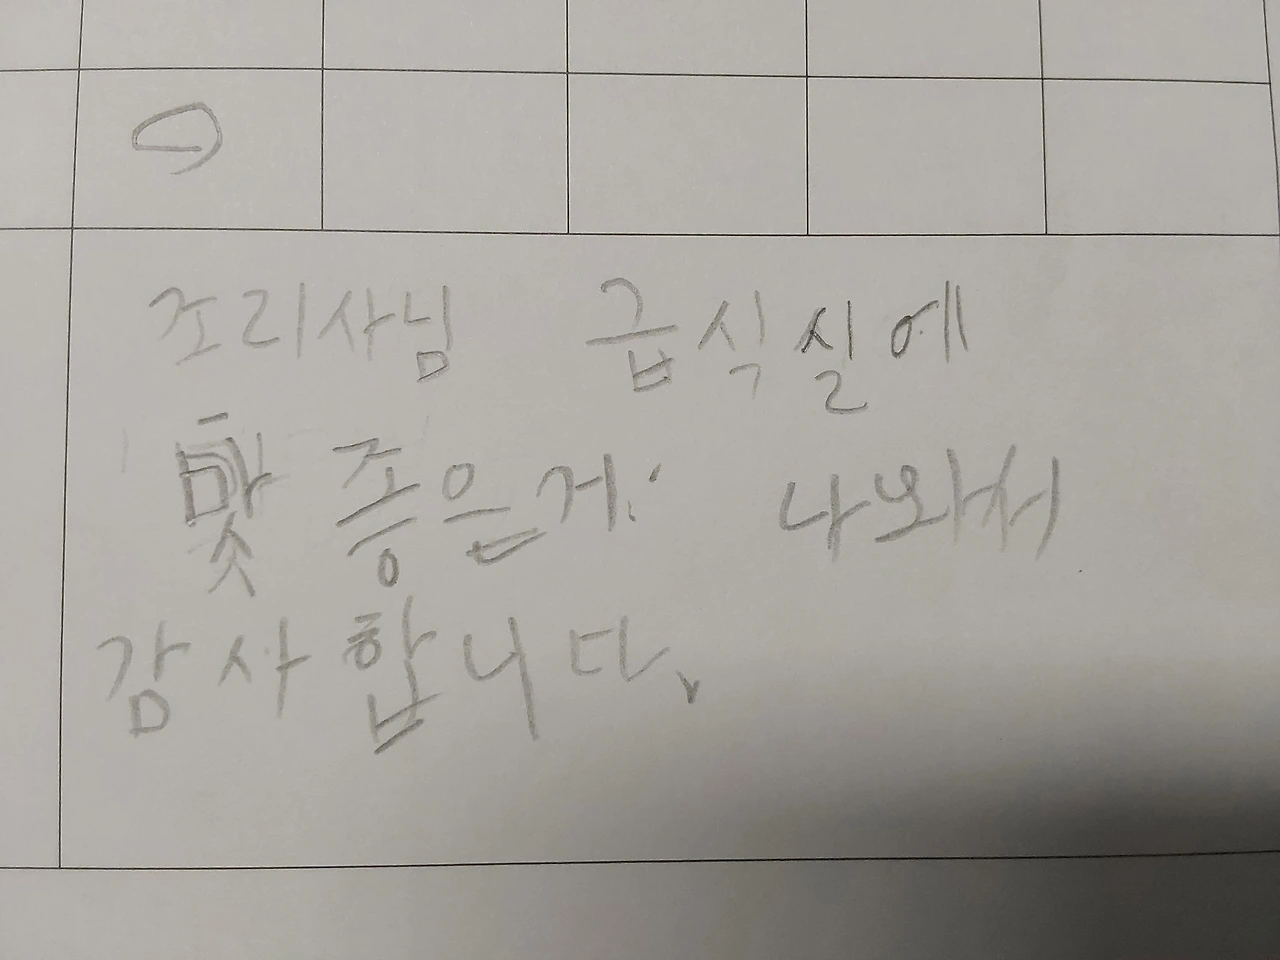 조리사님 급식실에
맛 좋은게 나와서
감사합니다.